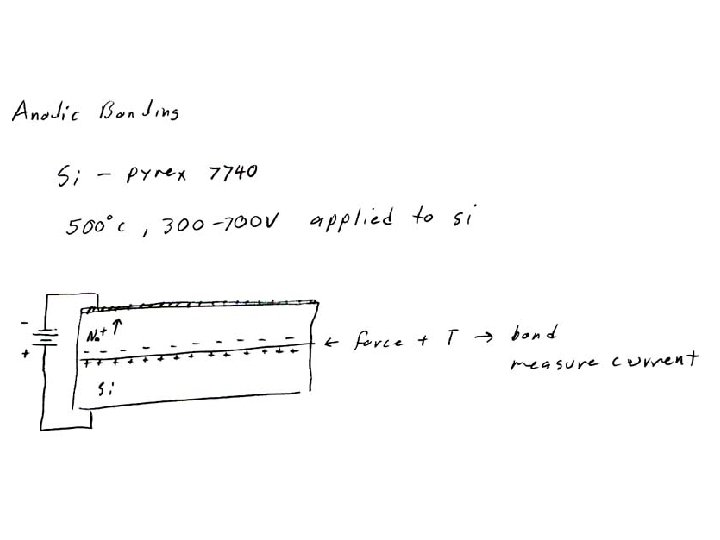 Anodic Bonding
Si - pyrex 7740
500°c, 300-700V applied to si
-
+
Na+ ↑
- - - - - - - - -
+ + + + + + + + + + + +
Si
← force + T → bond
measure current